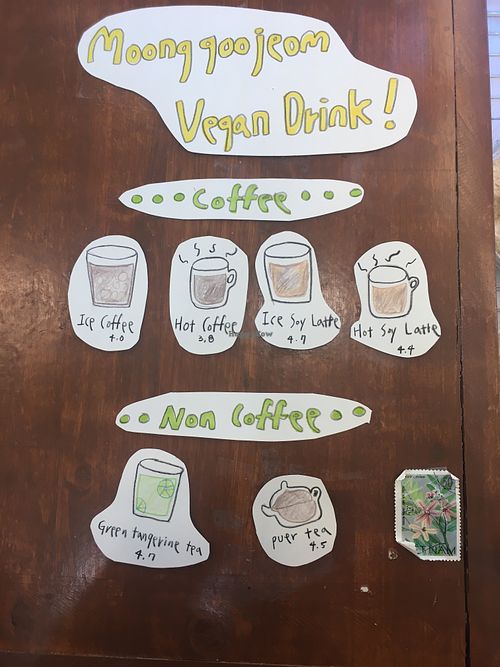 Moonggoojeom
Vegan Drink!
Coffee
Ice Coffee
4.0
Hot Coffee
3.8
Ice Soy Latte
4.7
Hot Soy Latte
4.4
Non Coffee
Green tangerine tea
4.7
puer tea
4.5